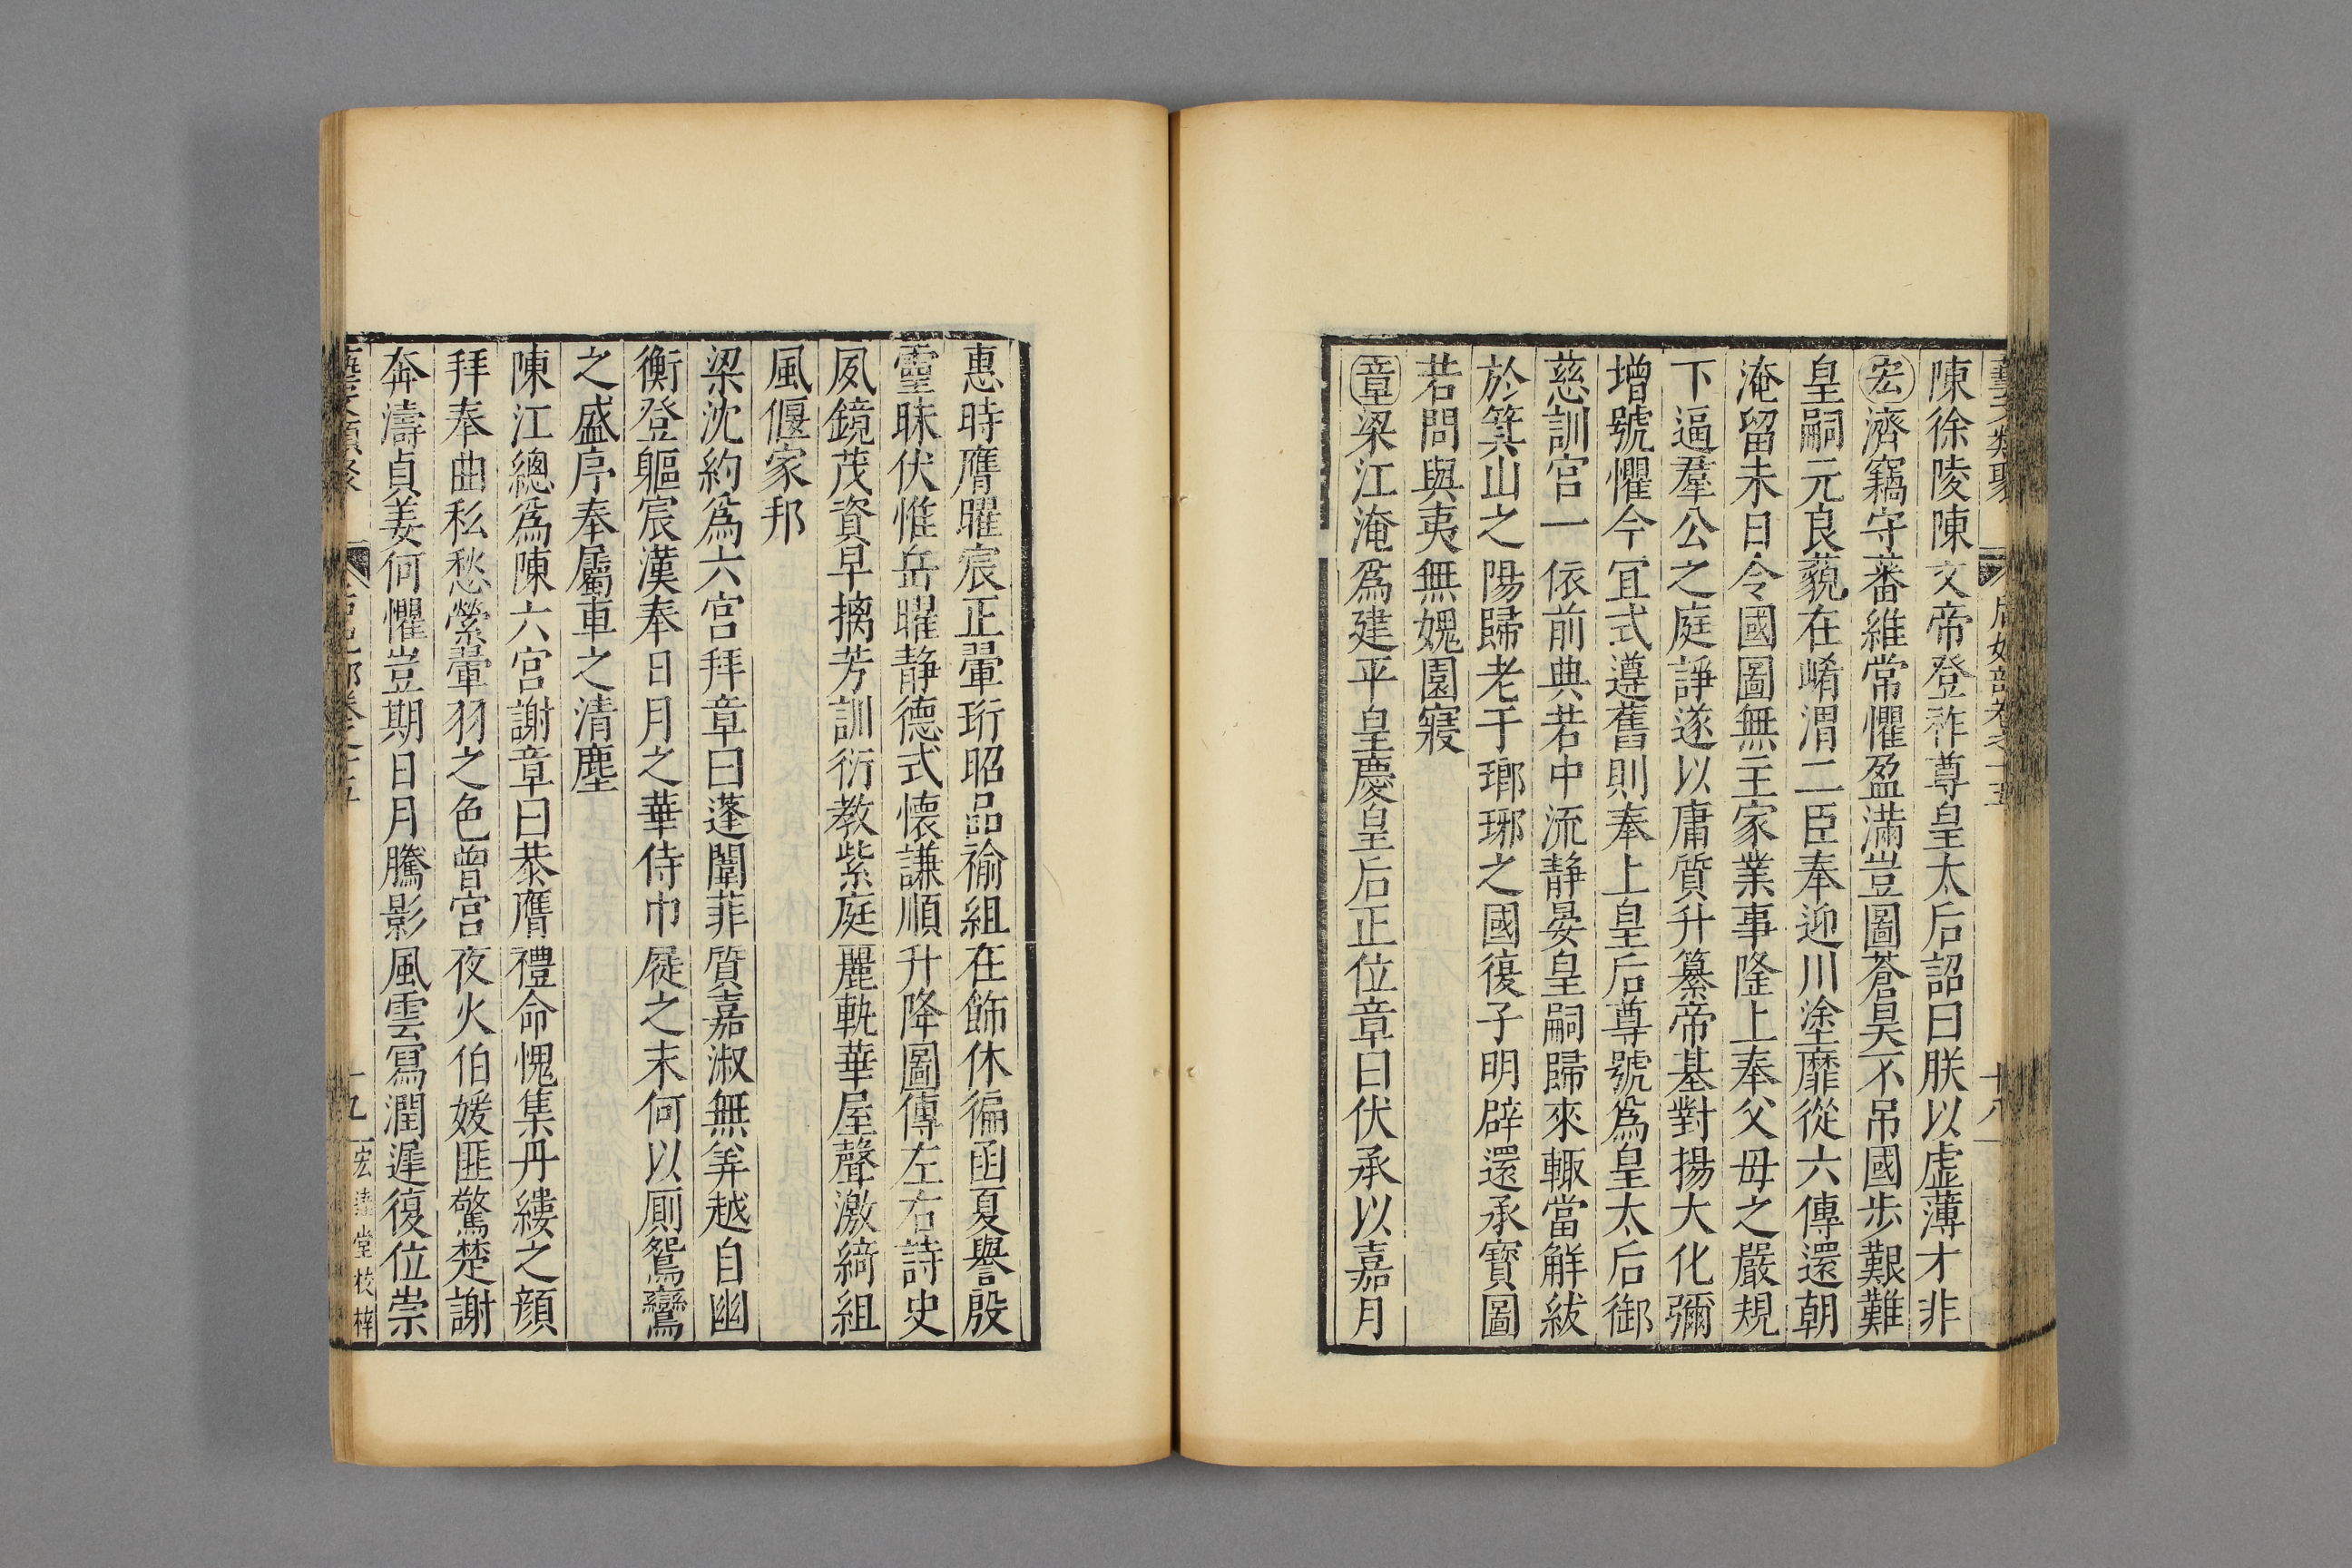 藝文類聚 后妃部卷之十五 十八
陳徐陵陳文帝登祚尊皇太后詔曰朕以虛薄才非
宏濟竊守蕃維常懼盈滿豈圖蒼昊不吊國步艱難
皇嗣元良藐在崤渭二臣奉迎川塗靡從六傳還朝
淹留未日令國圖無主家業事隆上奉父母之嚴規
下逼羣公之庭諍遂以庸質升纂帝基對揚大化彌
增號懼今宜式遵舊則奉上皇后尊號爲皇太后御
慈訓宫一依前典若中流静晏皇嗣歸來輙當解紱
於箕山之陽歸老于瑯琊之國復子明辟還承寶圖
若問與夷無媿園寢
章梁江淹爲建平皇慶皇后正位章曰伏承以嘉月
惠時膺曜宸正翬珩昭品褕組在飾休徧函夏譽殷
靈昧伏惟岳曜静德式懐謙順升降圖傳左右詩史
夙鏡茂資早摛芳訓衍教紫庭麗軌華屋聲激綺組
風偃家邦
梁沈約爲六宫拜章曰蓬闈菲質嘉淑無筭越自幽
衡登軀宸漢奉日月之華侍巾屣之末何以厠鴛鸞
之盛序奉屬車之清塵
陳江總爲陳六宫謝章曰恭膺禮命愧集丹縷之顔
拜奉曲私愁縈翬羽之色曾宫夜火伯媛匪驚楚謝
奔濤貞姜何懼豈期日月騰影風雲寫潤遲復位崇
藝文類聚 后妃部卷之十五 十九 宏達堂校梓